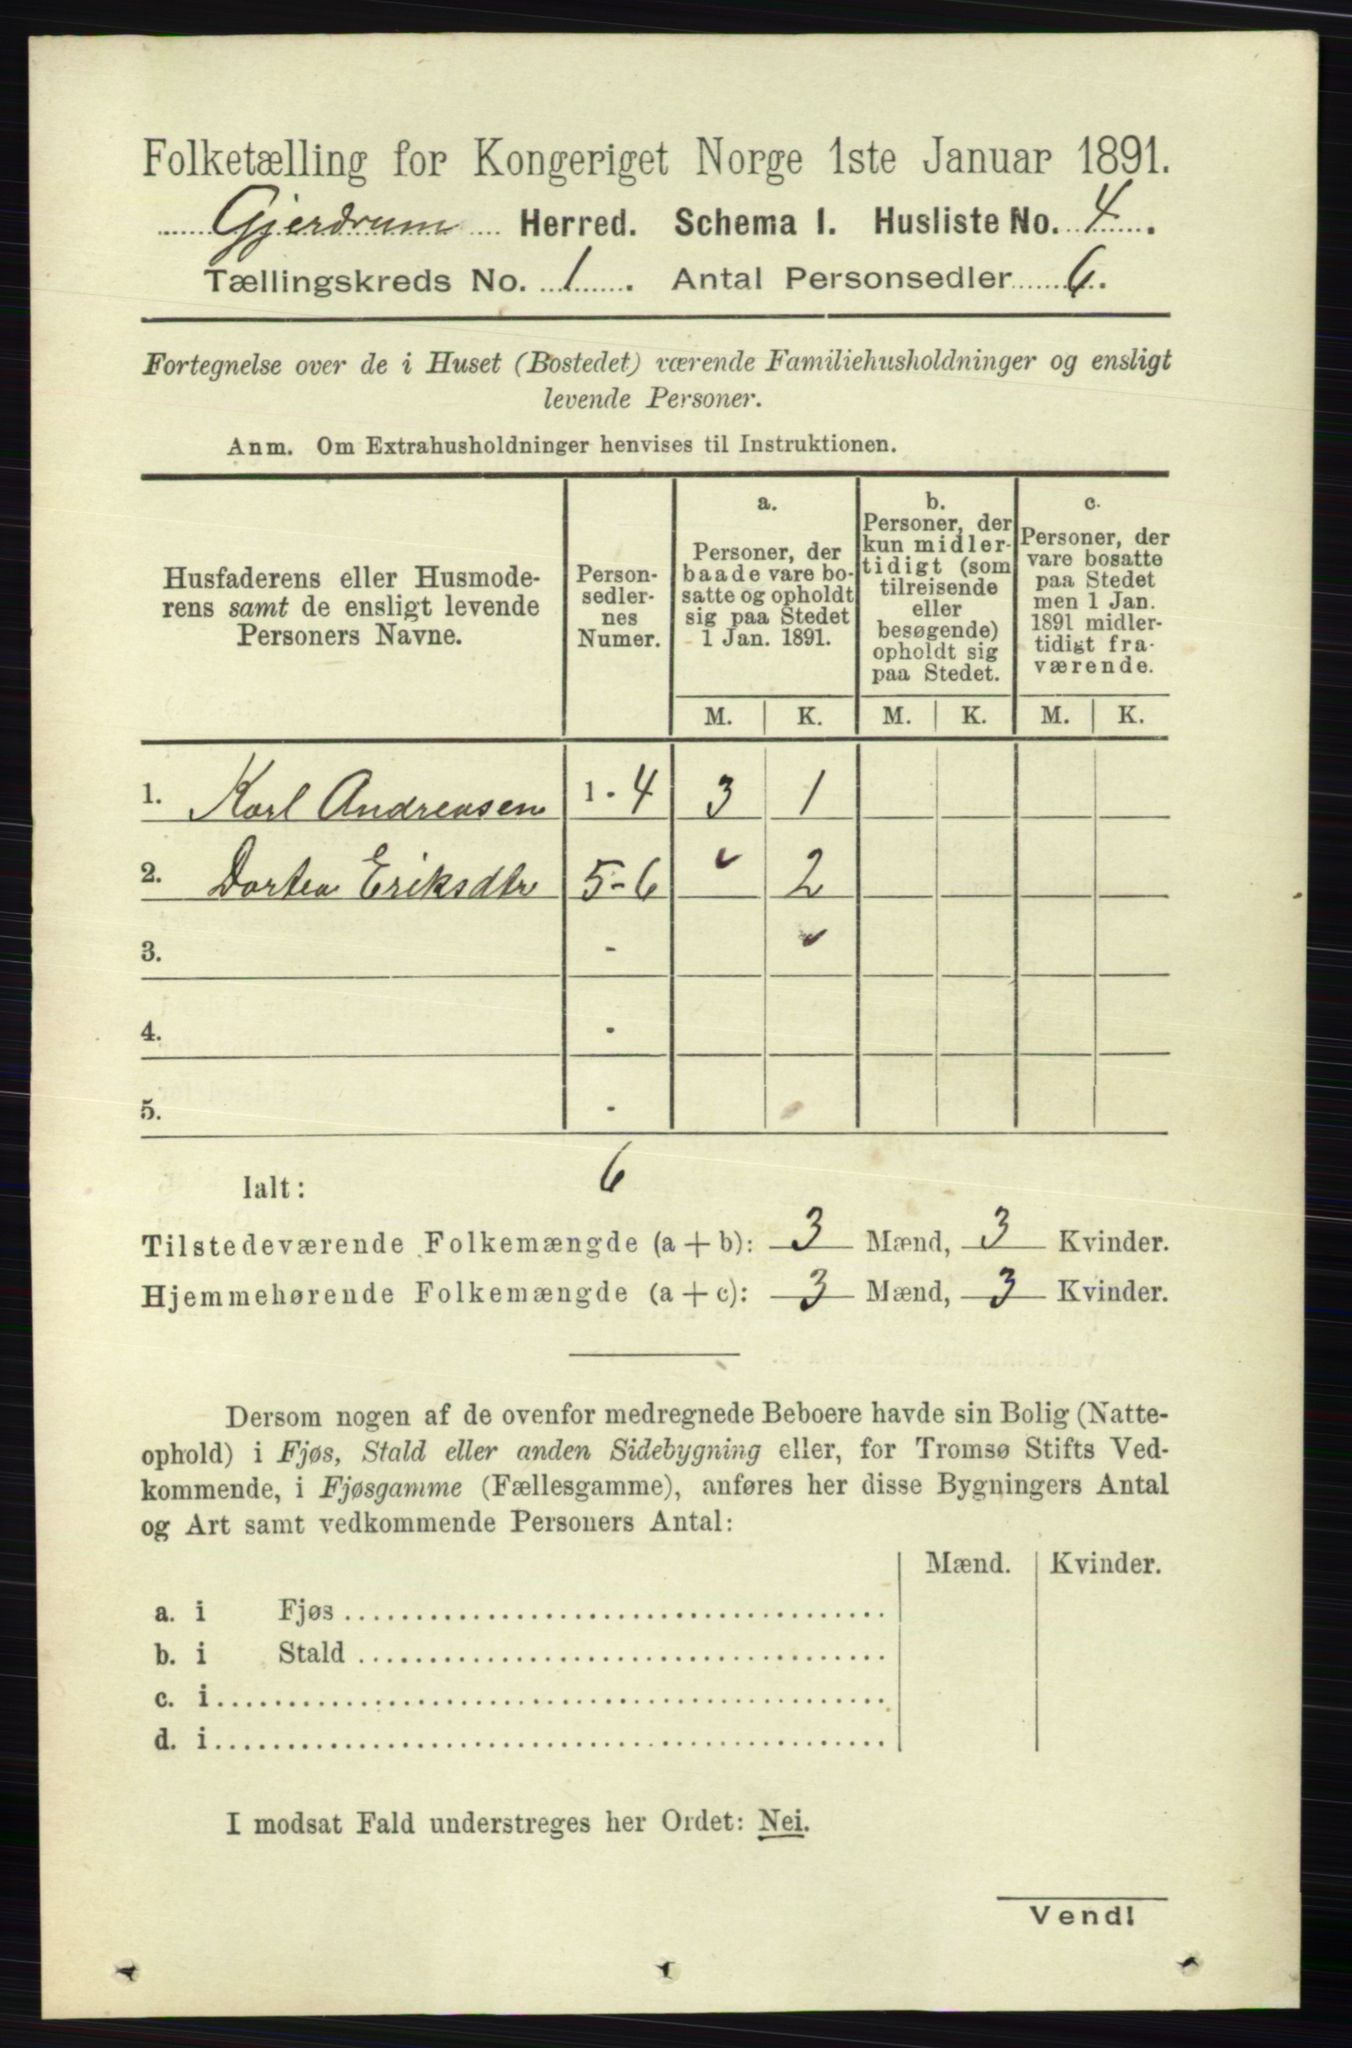 Folketælling for Kongeriget Norge 1ste Januar 1891.
Gjerdrum Herred. Schema I. Husliste No. 4.
Tællingskreds No. 1. Antal Personsedler 6.
Fortegnelse over de i Huset (Bostedet) værende Familiehusholdninger og ensligt
levende Personer.
Anm. Om Extrahusholdninger henvises til Instruktionen.
Husfaderens eller Husmode-
rens samt de ensligt levende
Personers Navne.
Person-
sedler-
nes
Numer.
a.
Personer, der
baade vare bo-
satte og opholdt
sig paa Stedet
1 Jan. 1891.
b.
Personer, der
kun midler-
tidigt (som
tilreisende
eller
besøgende)
opholdt sig
paa Stedet.
c.
Personer, der
vare bosatte
paa Stedet
men 1 Jan.
1891 midler-
tidigt fra-
værende.
M. K. M. K. M. K.
1. Karl Andreasen 1-4 3 1
2. Dortea Eriksdtr 5-6 2
3. -
4. -
5. -
Ialt: 6
Tilstedeværende Folkemængde (a + b): 3 Mænd, 3 Kvinder.
Hjemmehørende Folkemængde (a + c): 3 Mænd, 3 Kvinder.
Dersom nogen af de ovenfor medregnede Beboere havde sin Bolig (Natte-
ophold) i Fjøs, Stald eller anden Sidebygning eller, for Tromsø Stifts Ved-
kommende, i Fjøsgamme (Fællesgamme), anføres her disse Bygningers Antal
og Art samt vedkommende Personers Antal:
Mænd. Kvinder.
a. i Fjøs
b. i Stald
c. i
d. i
I modsat Fald understreges her Ordet: Nei.
Vend!